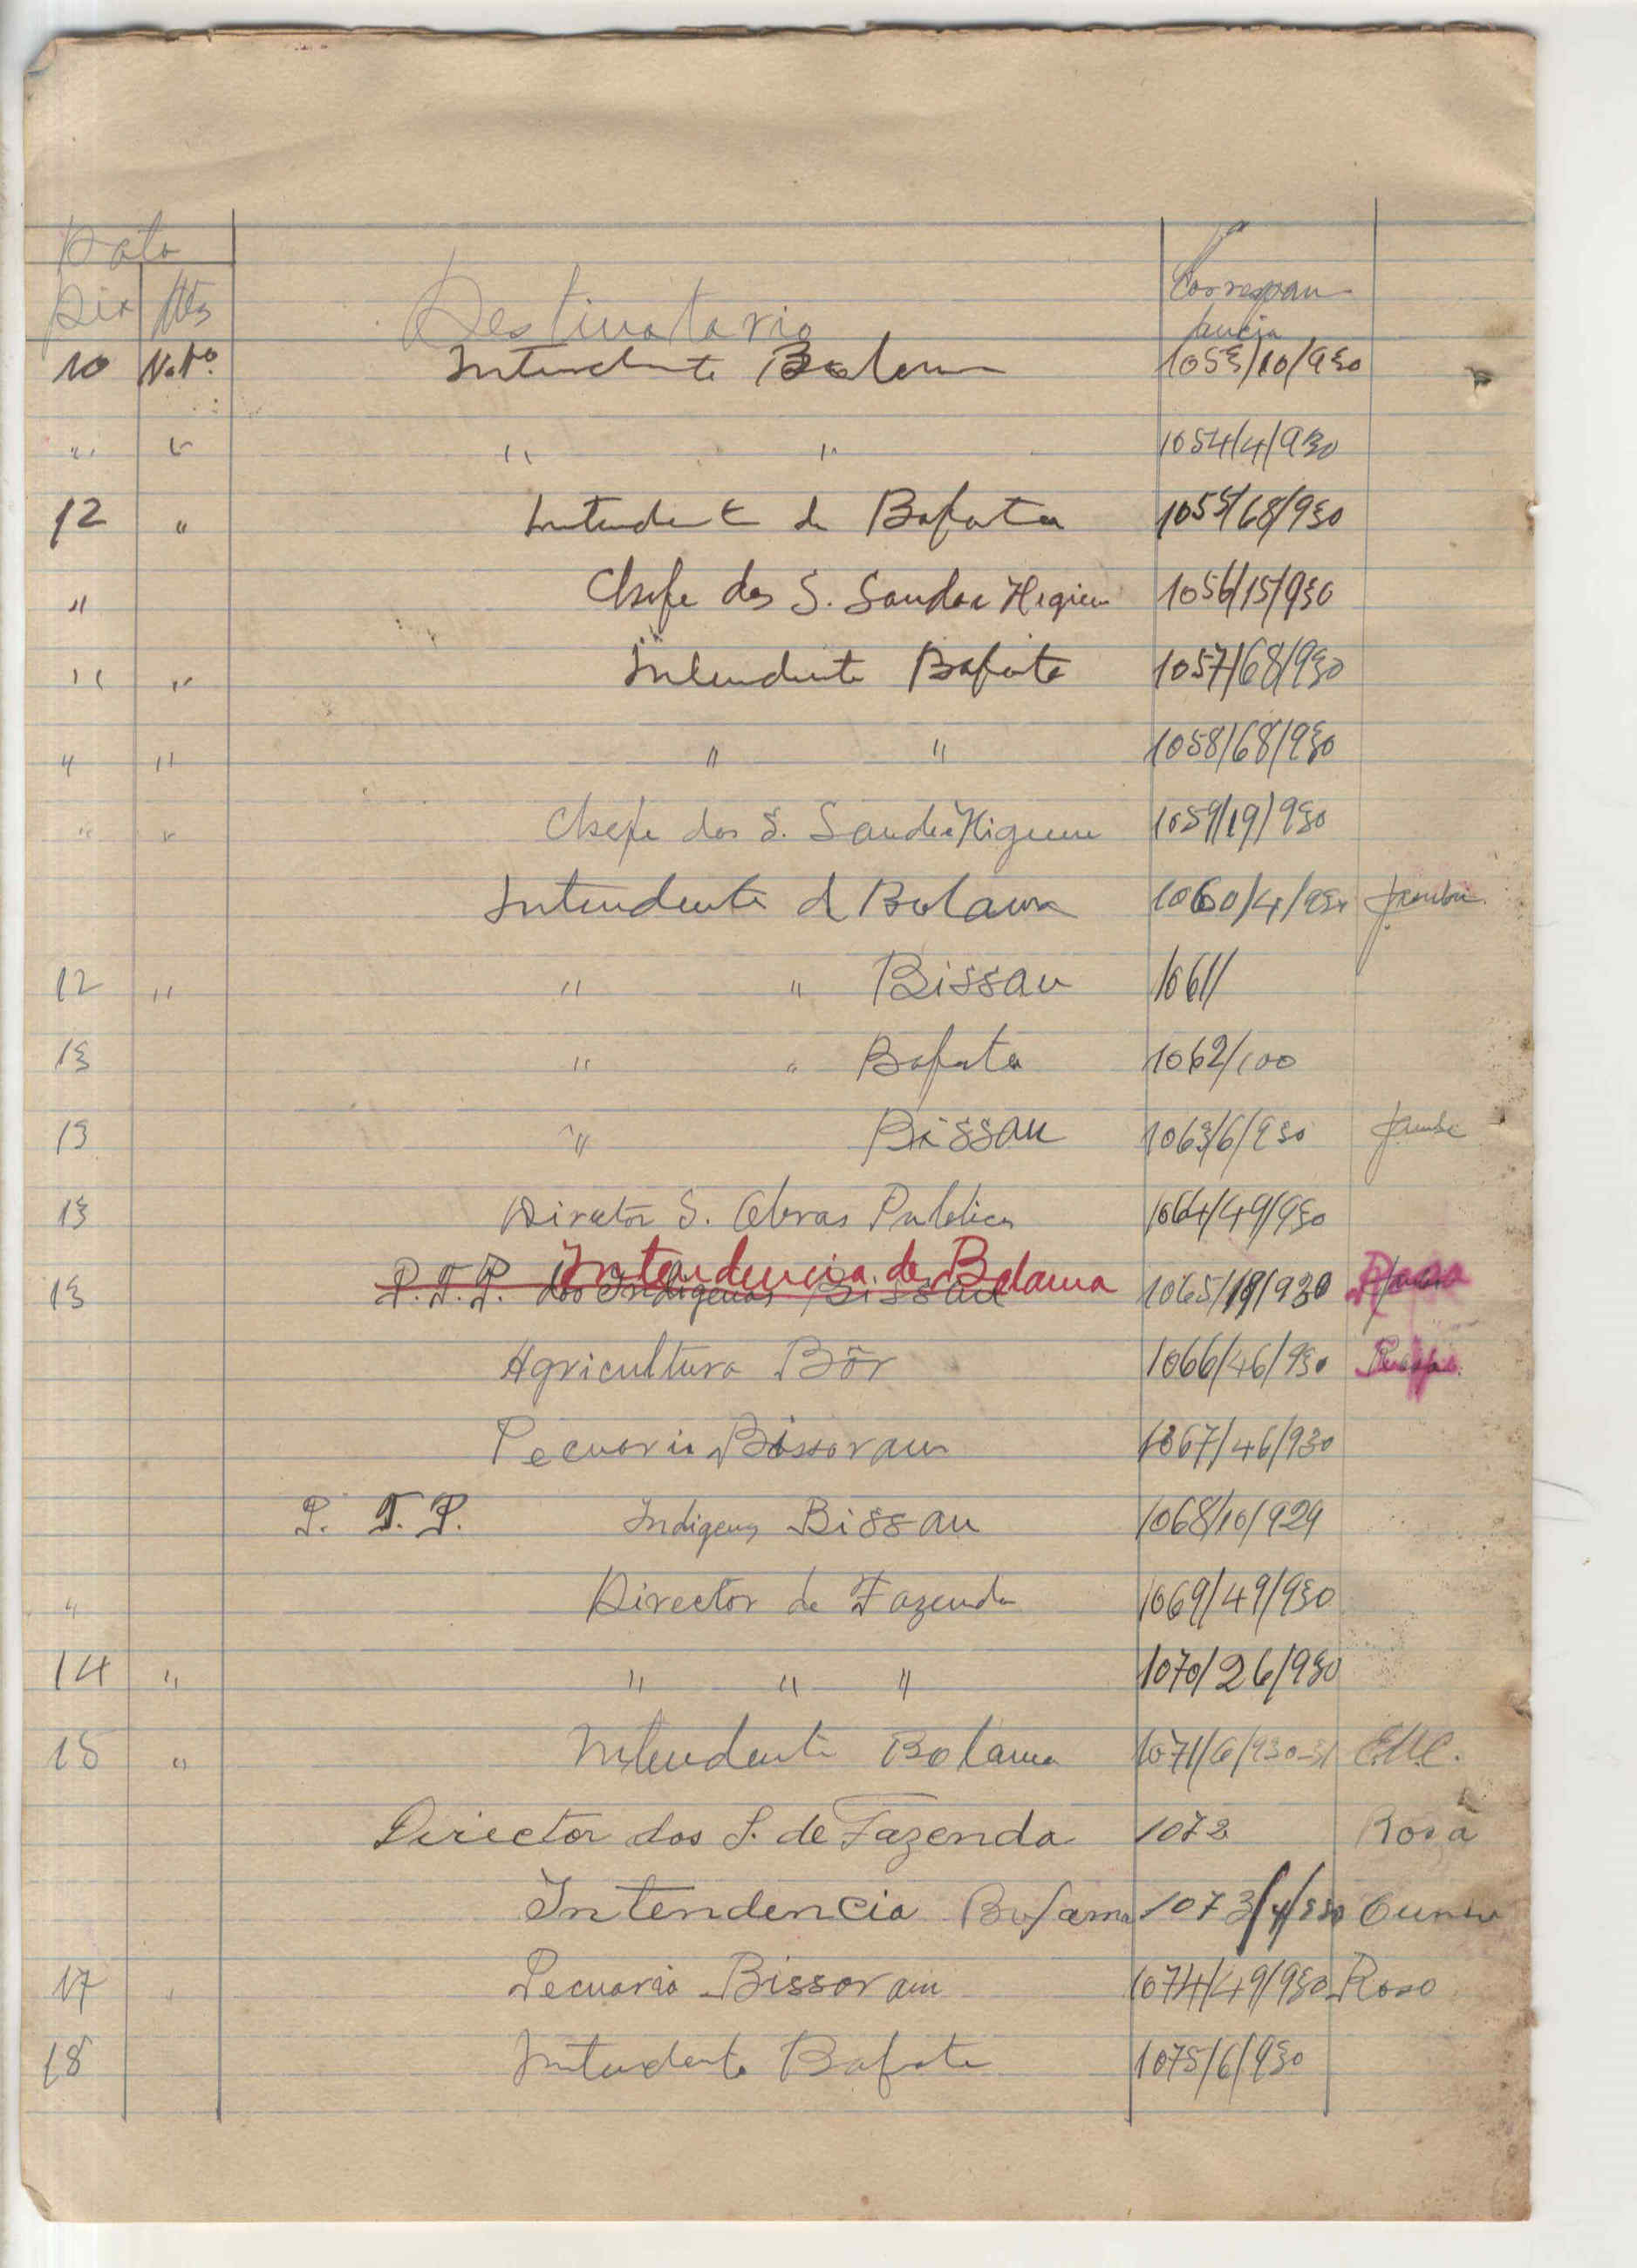 Data
Dia Mês Destinatario Correspondencia
10 Nov.º Intendente Bolama 1053/10/930
" " " " 1054/4/930
12 " Intendente de Bafata 1055/68/930
" Chefe dos S. Saude e Higiene 1056/15/930
" " Intendente Bafata 1057/68/930
" " " " 1058/68/930
" " Chefe dos S. Saude e Higiene 1059/19/930
Intendente de Bolama 1060/4/930
12 " " " Bissau 1061/
13 " " Bafata 1062/100
13 " Bissau 1063/6/930
13 Director S. Obras Publicas 1064/49/930
Intendencia de Bolama
13 P.T.P. dos Indigenas Bissau 1065/19/930
Agricultura Bôr 1066/46/930
Pecuaria Bissoram 1067/46/930
P. T. P. Indigenas Bissau 1068/10/929
" Director de Fazenda 1069/49/930
14 " " " " 1070/26/930
15 " Intendente Bolama 1071/6/930-31
Director dos S. de Fazenda 1072 Rosa
Intendencia Bolama 1073/4/930
17 " Pecuaria Bissoram 1074/49/930 Rosa
18 Intendente Bafata 1075/6/930